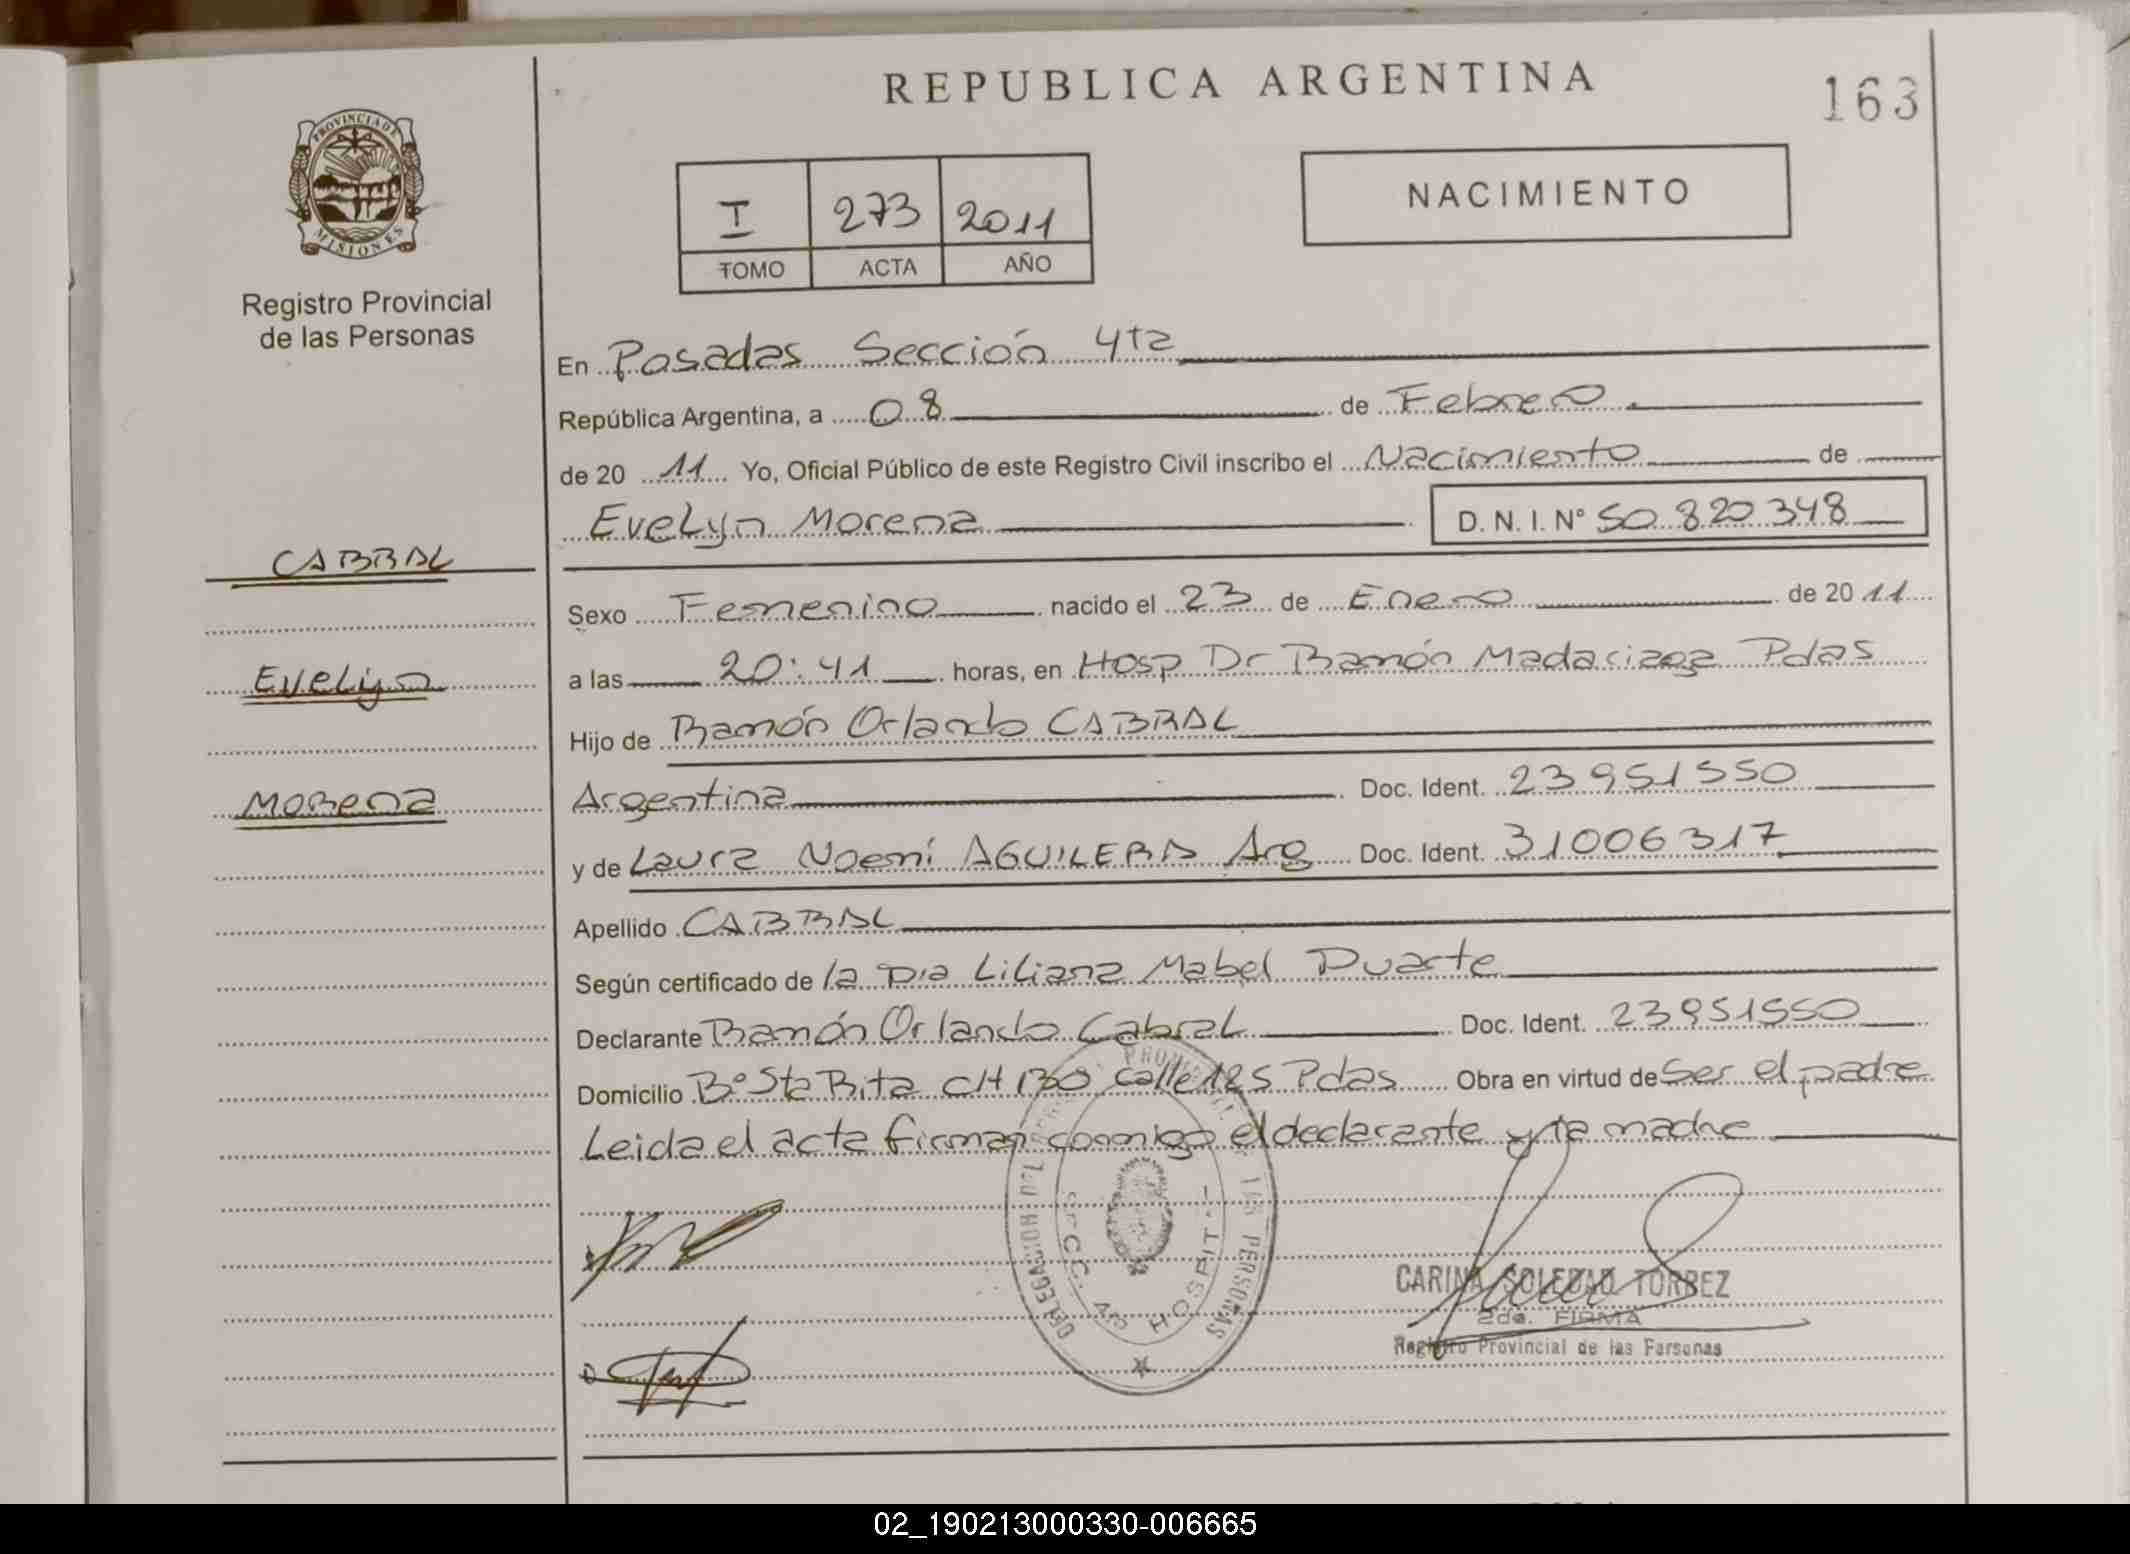 REPUBLICA ARGENTINA
163
PROVINCIA DE
MISIONES
Registro Provincial
de las Personas
I 273 2011
TOMO ACTA AÑO
NACIMIENTO
En Posadas Sección 4ta
República Argentina, a 08 de Febrero
de 20 11 Yo, Oficial Público de este Registro Civil inscribo el Nacimiento de
Evelyn Morena D. N. I. N° 50 820 348
CABRAL
Evelyn
Morena
Sexo Femenino nacido el 23 de Enero de 20 11
a las 20:41 horas, en Hosp Dr Ramón Madariaga Pdas
Hijo de Ramón Orlando CABRAL
Argentina Doc. Ident. 23951550
y de Laura Noemí AGUILERA Arg Doc. Ident. 31006317
Apellido CABRAL
Según certificado de la Dra Liliana Mabel Duarte
Declarante Ramón Orlando Cabral Doc. Ident. 23951550
Domicilio B° Sta Rita CH 130 calle 125 Pdas Obra en virtud de Ser el padre
Leida el acta firman conmigo el declarante y la madre
DELEGACION DEL PROVINCIAL DE LAS PERSONAS
SECC. 4ta HOSPIT.
CARINA SOLEDAD TORREZ
2da. FIRMA
Registro Provincial de las Personas
02_190213000330-006665